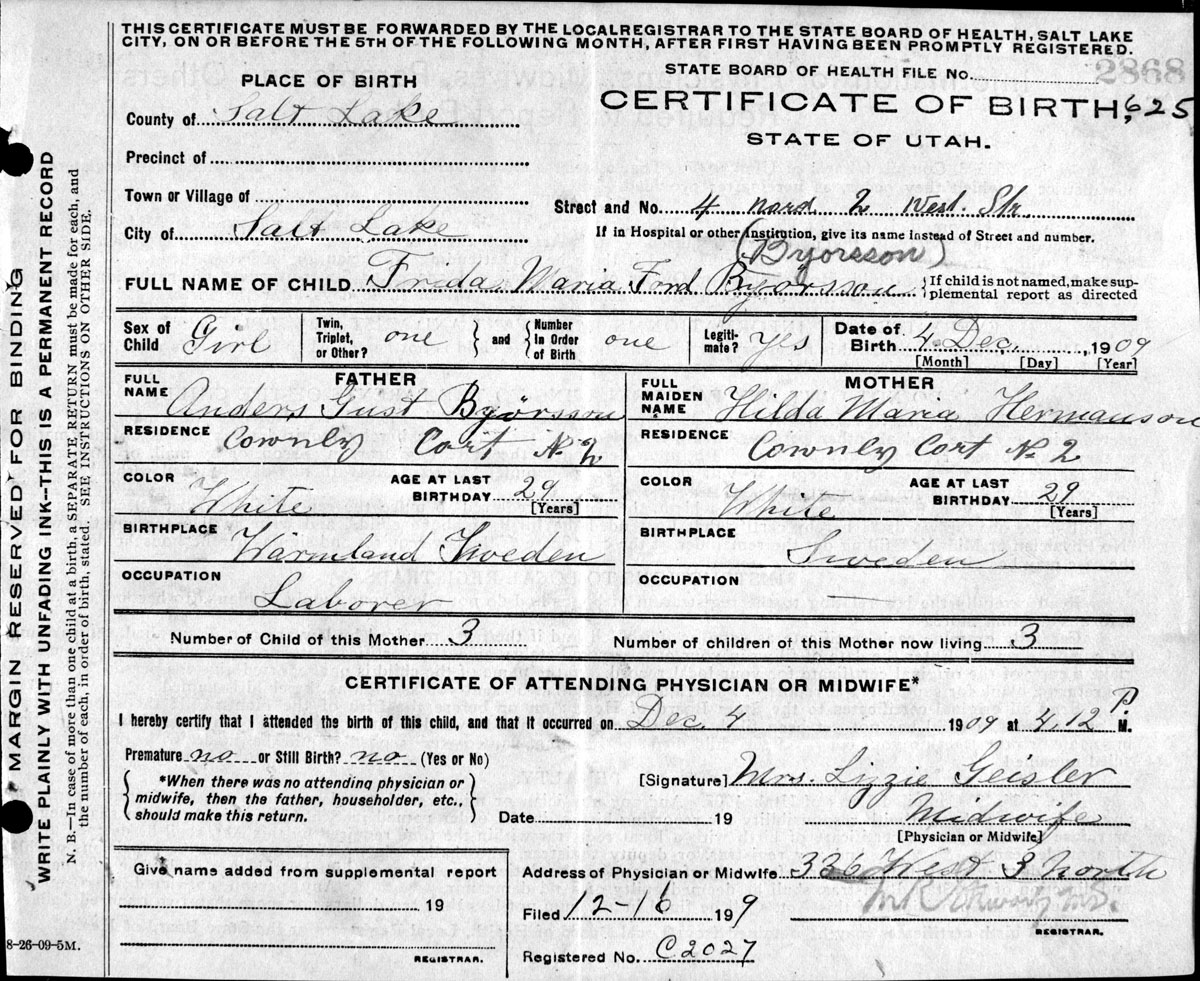 THIS CERTIFICATE MUST BE FORWARDED BY THE LOCAL REGISTRAR TO THE STATE BOARD OF HEALTH, SALT LAKE
CITY, ON OR BEFORE THE 5TH OF THE FOLLOWING MONTH, AFTER FIRST HAVING BEEN PROMPTLY REGISTERED.
STATE BOARD OF HEALTH FILE No. 2868
PLACE OF BIRTH
CERTIFICATE OF BIRTH, 625
STATE OF UTAH.
County of Salt Lake
Precinct of
Town or Village of
Street and No. 4 nord 2 West. Str.
City of Salt Lake
If in Hospital or other Institution, give its name instead of Street and number.
(Byorsson)
FULL NAME OF CHILD Frida Maria Ford Byørsson
{If child is not named, make sup-
plemental report as directed
Sex of Child Girl
Twin, Triplet, or Other? one
and
Number in Order of Birth one
Legiti-mate? yes
Date of Birth 4 Dec. , 1909
[Month] [Day] [Year]
FATHER
FULL NAME Anders Gust Byørsson
RESIDENCE Cownly Cort No 2
COLOR White
AGE AT LAST BIRTHDAY 29
[Years]
BIRTHPLACE Warmland Sweden
OCCUPATION Laborer
MOTHER
FULL MAIDEN NAME Hilda Maria Hermanson
RESIDENCE Cownly Cort No 2
COLOR White
AGE AT LAST BIRTHDAY 29
[Years]
BIRTHPLACE Sweden
OCCUPATION —
Number of Child of this Mother 3
Number of children of this Mother now living 3
CERTIFICATE OF ATTENDING PHYSICIAN OR MIDWIFE*
I hereby certify that I attended the birth of this child, and that it occurred on Dec. 4 1909 at 4,12 P. M.
Premature no or Still Birth? no (Yes or No)
{*When there was no attending physician or
midwife, then the father, householder, etc.,
should make this return.}
[Signature] Mrs. Lizzie Geisler
Date 19
Midwife
[Physician or Midwife]
Give name added from supplemental report
19
REGISTRAR.
Address of Physician or Midwife 336 West 3 North
Filed 12-16 199
REGISTRAR.
Registered No. C2027
8-26-09-5M.
MARGIN RESERVED FOR BINDING
WRITE PLAINLY WITH UNFADING INK--THIS IS A PERMANENT RECORD
N. B.—In case of more than one child at a birth, a SEPARATE RETURN must be made for each, and
the number of each, in order of birth, stated. SEE INSTRUCTIONS ON OTHER SIDE.